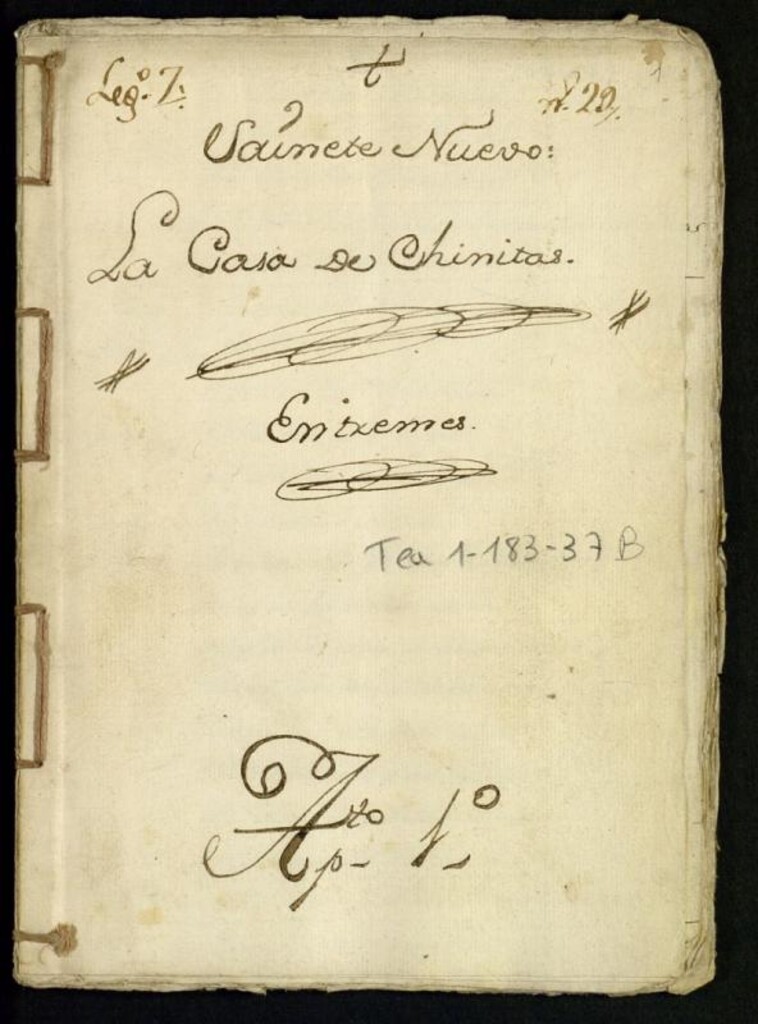 Leg.º 7. n.º 29,, 1
Sainete Nuevo:
La Casa de Chinitas.
Entremes.
Tea 1-183-37 B
Ap.to 1.º